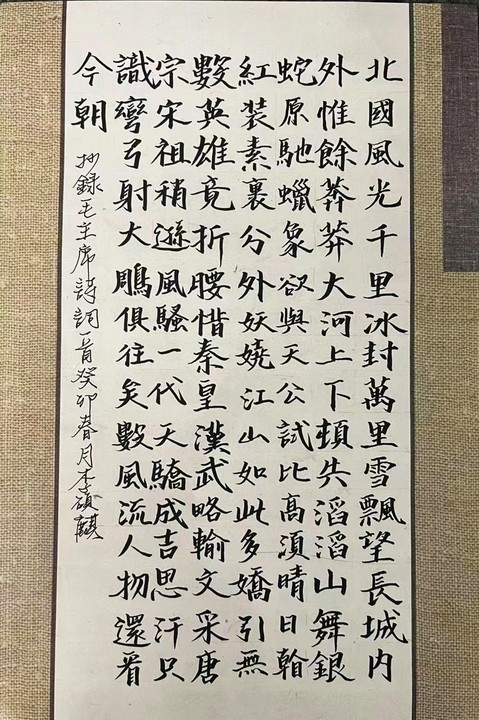 北國風光千里冰封萬里雪飄望長城内
外惟餘莽莽大河上下頓失滔滔山舞銀
蛇原馳蠟象欲與天公試比高須晴日
紅装素裏分外妖嬈江山如此多嬌引無
數英雄竟折腰惜秦皇漢武略輸文采唐
宗宋祖稍遜風騷一代天驕成吉思汗只
識彎弓射大鵰俱往矣數風流人物還看
今朝
抄錄毛主席詩詞一首癸卯春月李麒